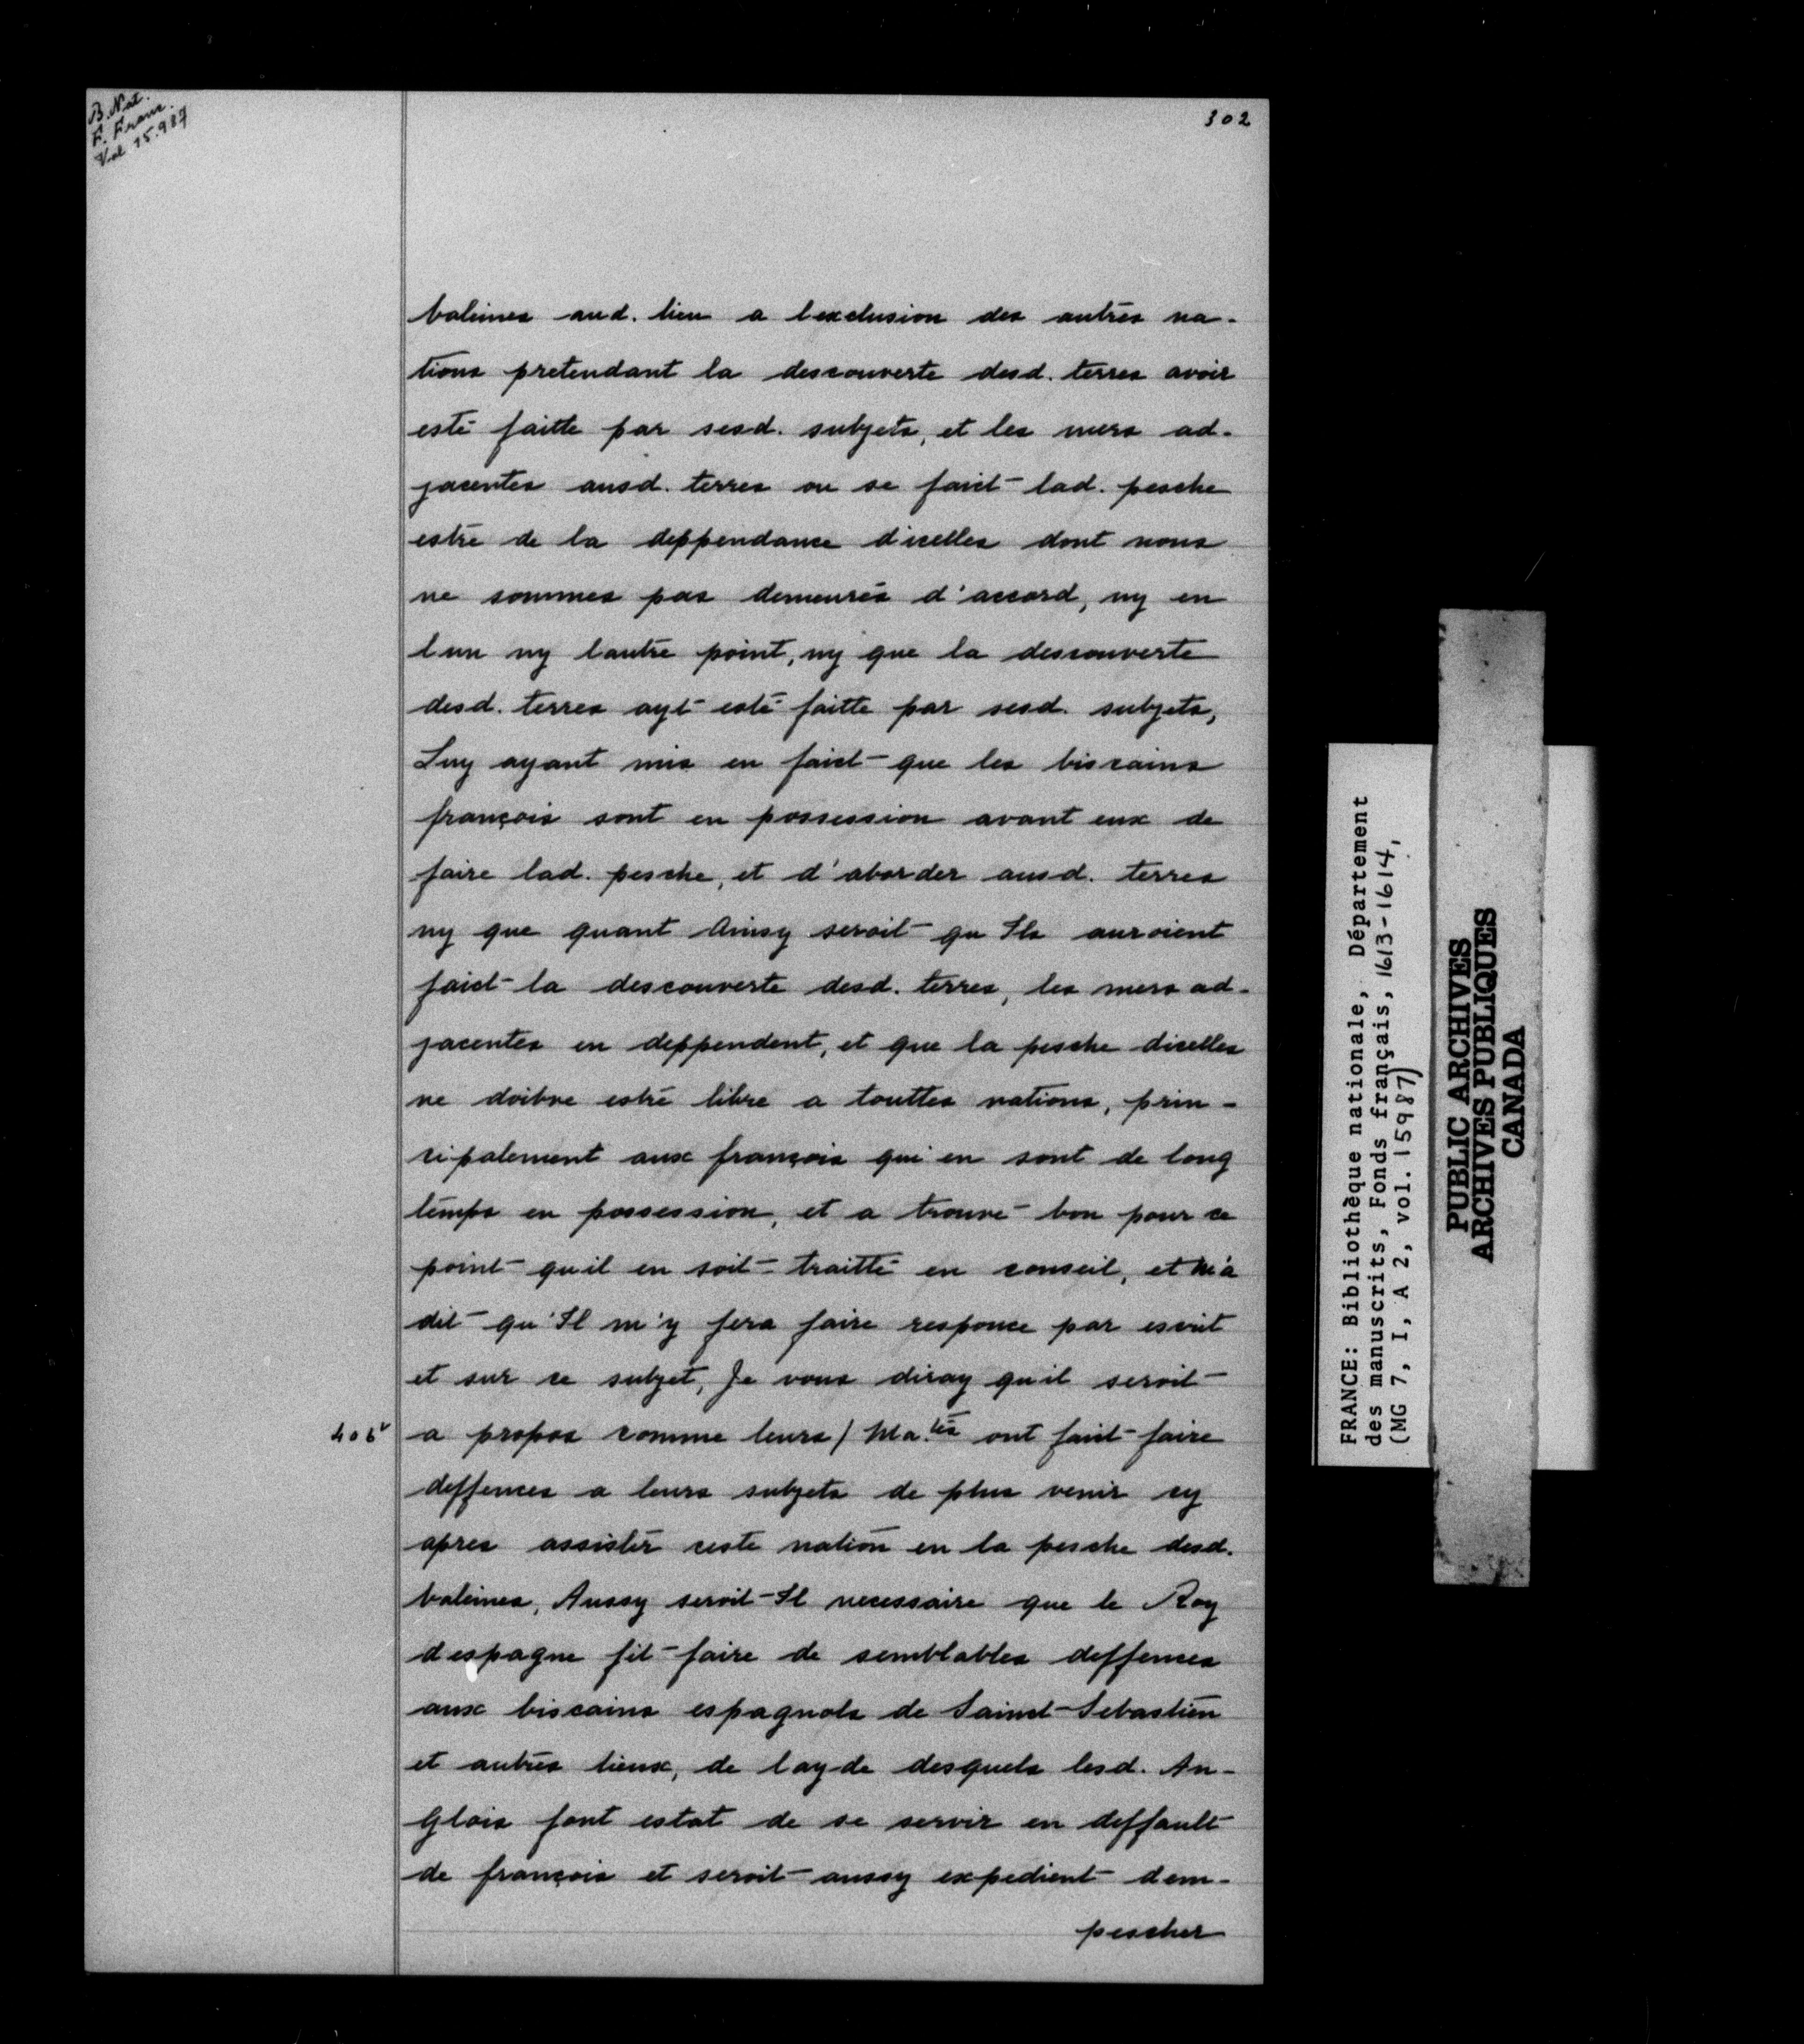 B. Nat.
F. Franc.
Vol 15.987
302
baleines aud. lieu a lexclusion des autres na-
tions pretendant la descouverte desd. terres avoir
esté faitte par sesd. subjets, et les mers ad-
jacentes ausd. terres ou se faict lad. pesche
estre de la deppendance dicelles dont nous
ne sommes pas demeurés d'accord, ny en
lun ny lautre point, ny que la descouverte
desd. terres ayt esté faitte par sesd. subjets,
Luy ayant mis en faict que les biscains
françois sont en possession avant eux de
faire lad. pesche, et d'aborder ausd. terres
ny que quant Ainsy seroit qu Ils auroient
faict la descouverte desd. terres, les mers ad-
jacentes en deppendent, et que la pesche dicelles
ne doibve estre libre a touttes nations, prin-
cipalement aux françois qui en sont de long
temps en possession, et a trouvé bon pour ce
point quil en soit traitté en conseil, et m'a
dit qu'Il m'y fera faire responce par escrit
et sur ce subjet, Je vous diray quil seroit
406v a propos comme leurs / Ma.tés ont faict faire
deffences a leurs subjets de plus venir cy
apres assister ceste nation en la pesche desd.
baleines, Aussy seroit Il necessaire que le Roy
despagne fit faire de semblables deffences
aux biscains espagnols de Sainct Sebastien
et autres lieux, de layde desquels lesd. An-
glois font estat de se servir en deffault
de françois et seroit aussy expedient dem-
pescher
FRANCE: Bibliothèque nationale, Département
des manuscrits, Fonds français, 1613-1614,
(MG 7, I, A 2, vol. 15987)
PUBLIC ARCHIVES
ARCHIVES PUBLIQUES
CANADA